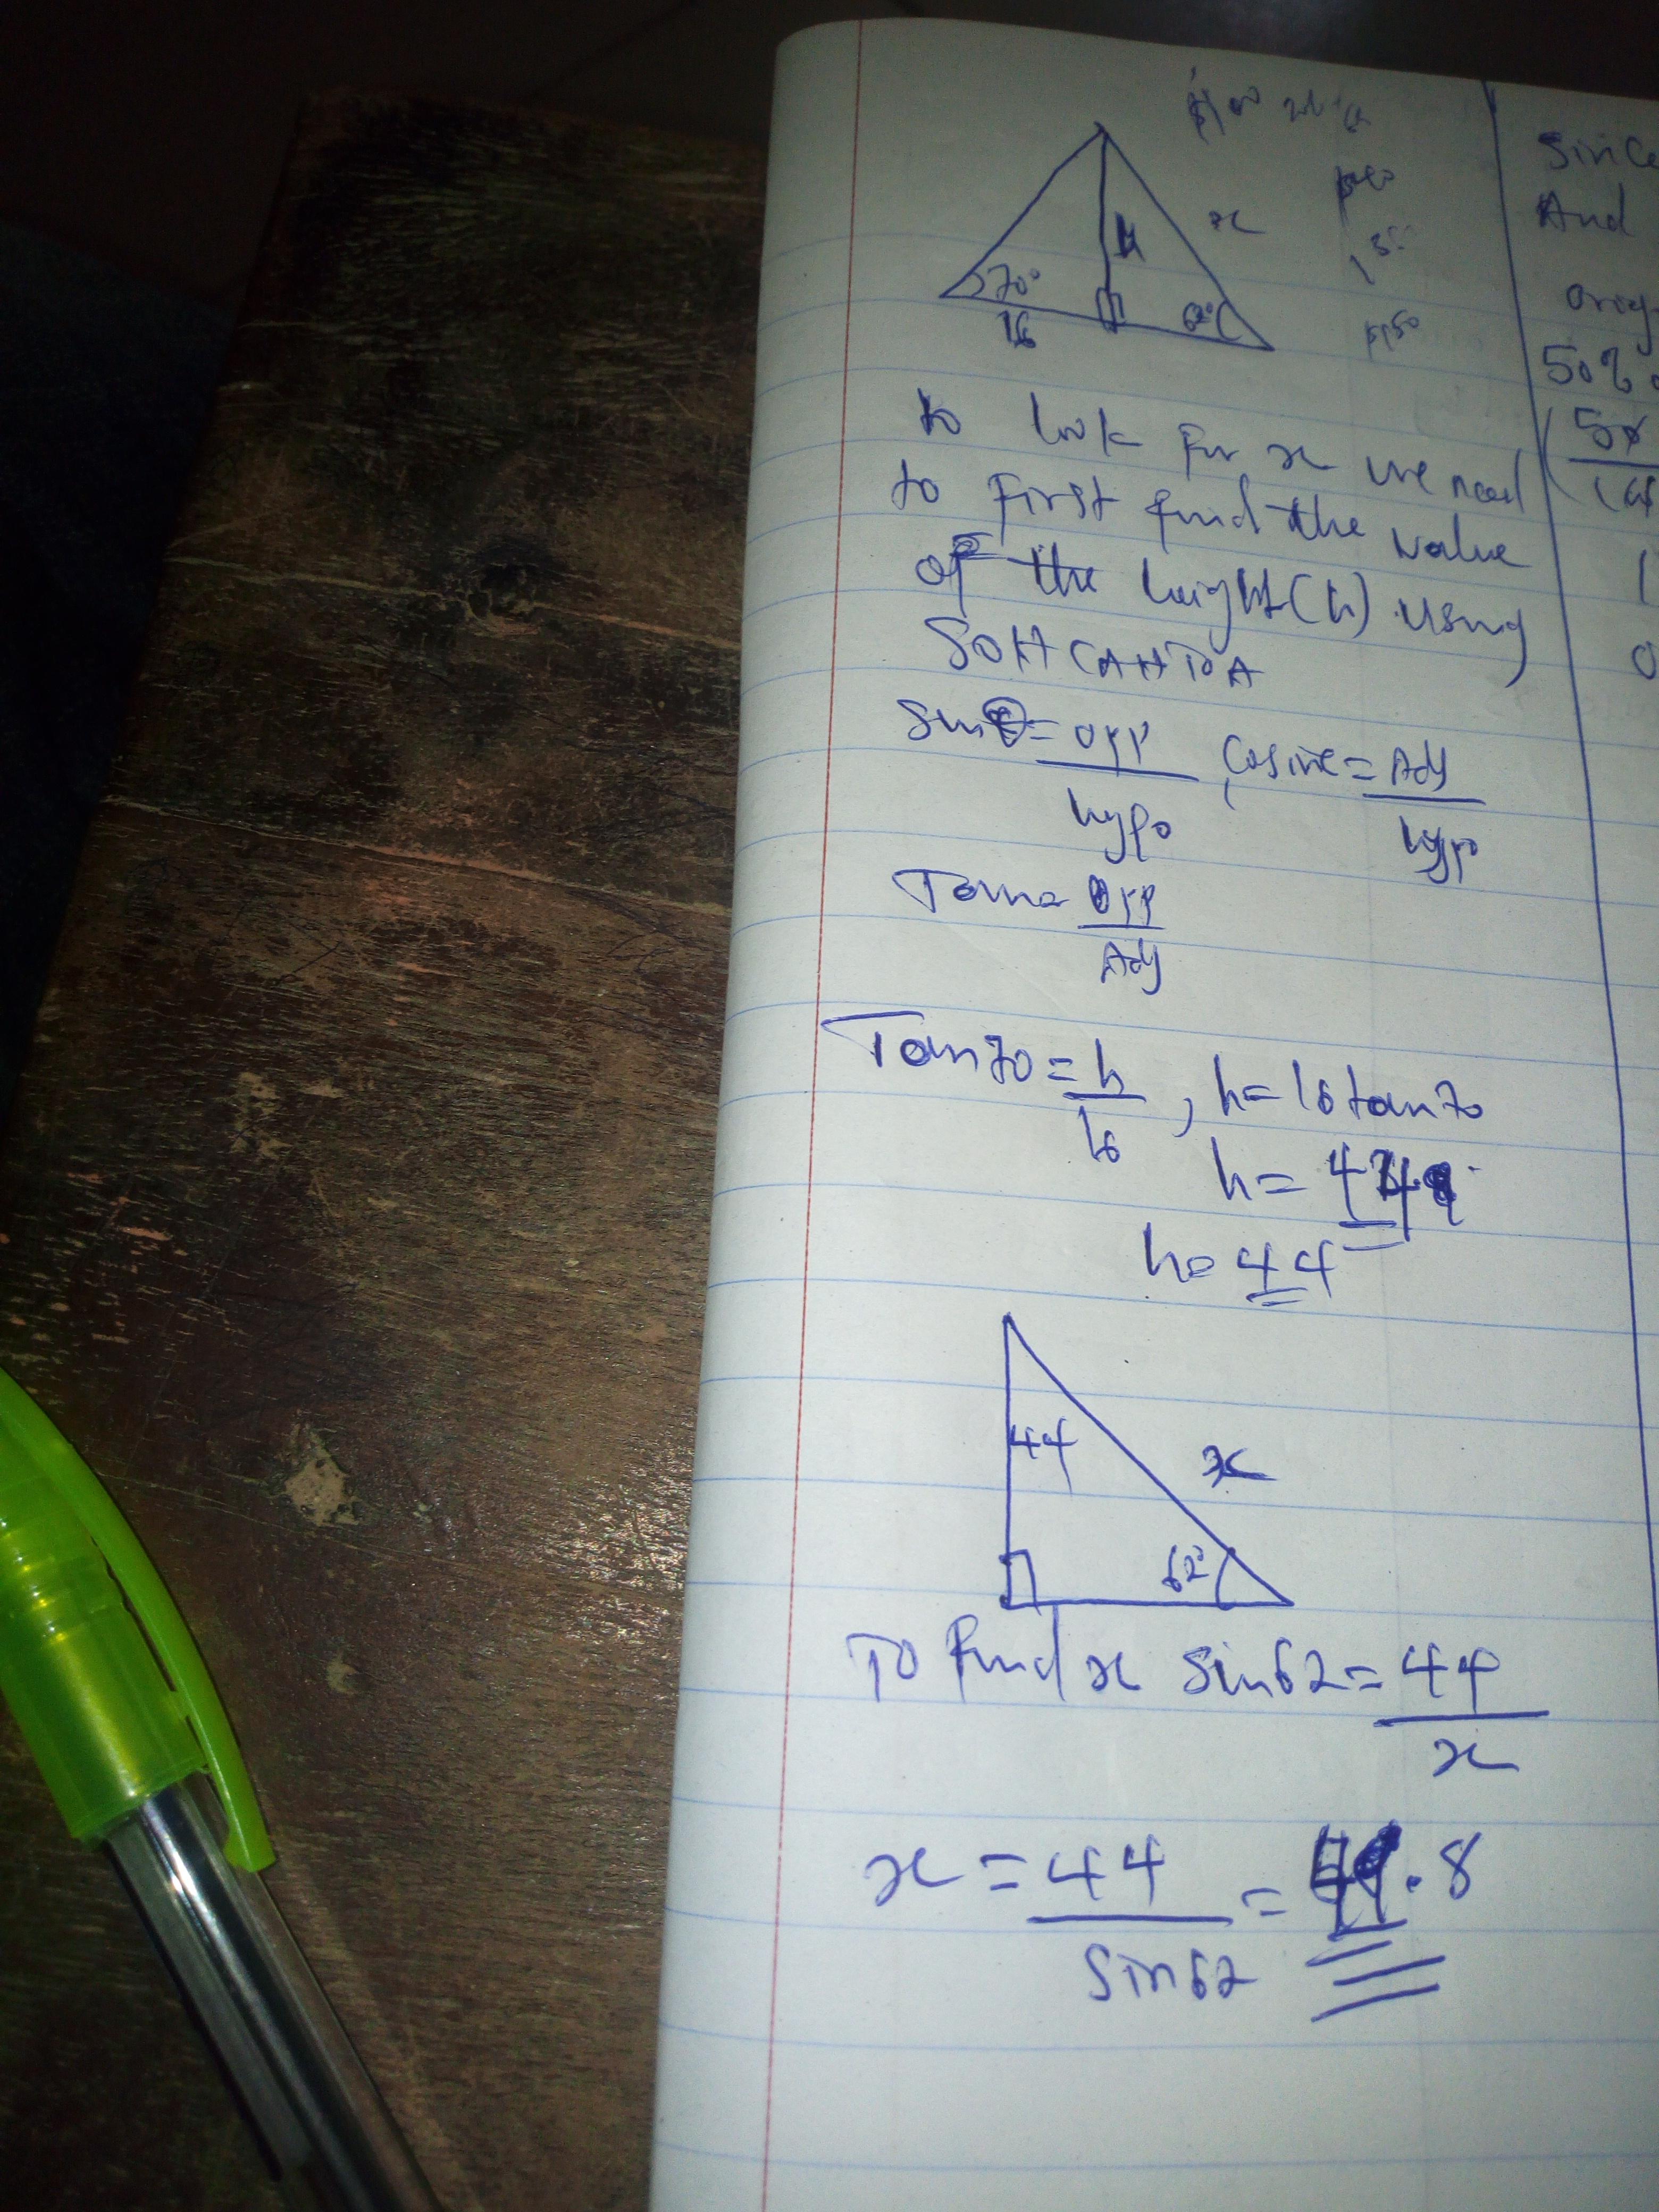 h
x
70°
16
62°
to look for x we need
to first find the value
of the height (h) using
SOHCAHTOA
Sinθ = opp/hypo, Cosine = Adj/hyp
Tan = opp/Adj
Tan70 = h/16, h = 16tan70
h = 44
44
x
62°
To find x Sin62 = 44/x
x = 44/Sin62 = 49.8
Since
And
50%